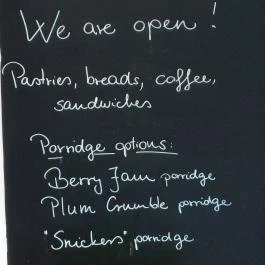 We are open!
Pastries, breads, coffee,
sandwiches
Porridge options:
Berry Jam porridge
Plum Crumble porridge
"Snickers" porridge